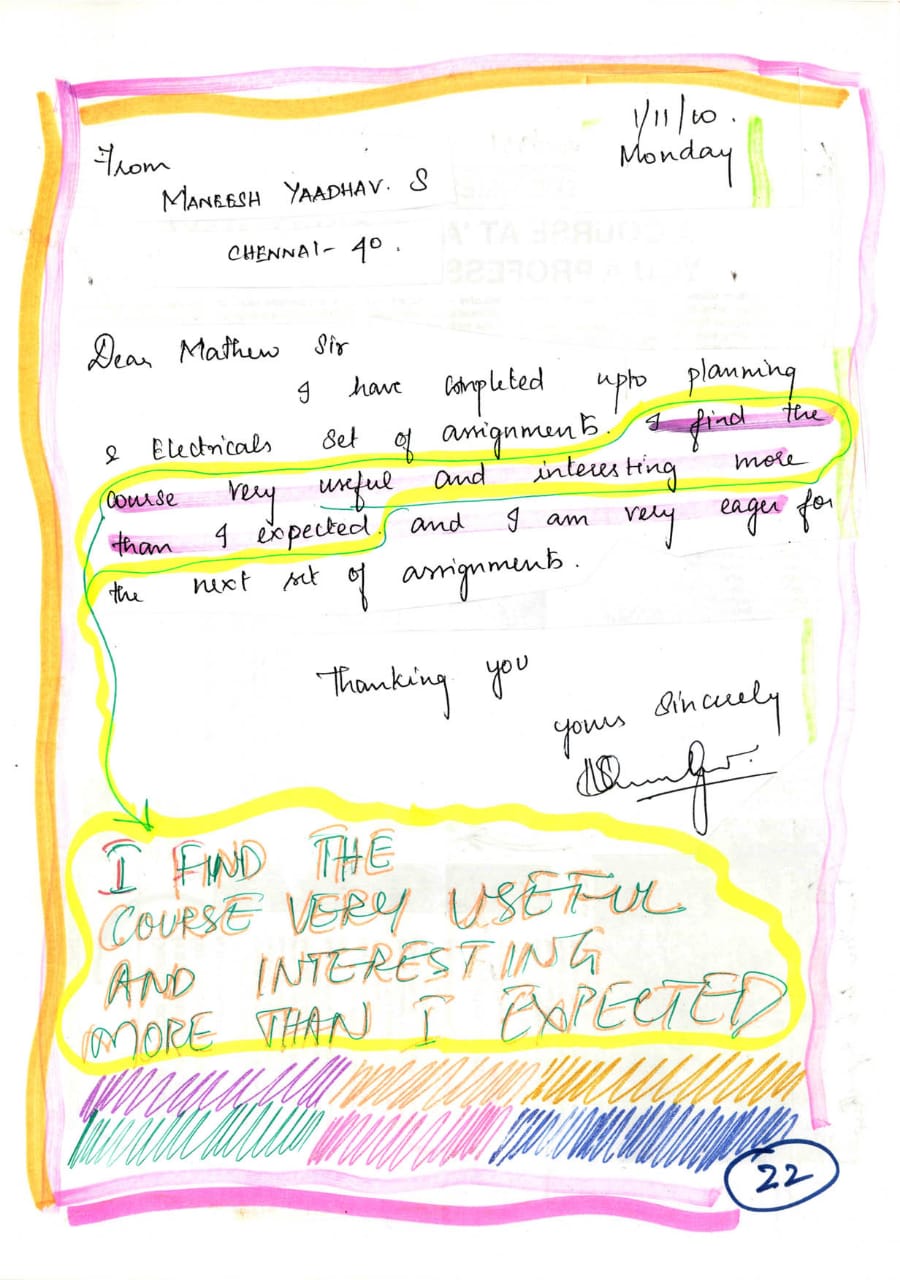 1/11/10.
Monday
From
MANEESH YAADHAV. S
CHENNAI- 40.
Dear Mathew Sir
I have completed upto planning
& Electricals set of assignments. I find the
course very useful and interesting more
than I expected. and I am very eager for
the next set of assignments.
Thanking you
yours sincerely
I FIND THE
COURSE VERY USEFUL
AND INTERESTING
MORE THAN I EXPECTED
22